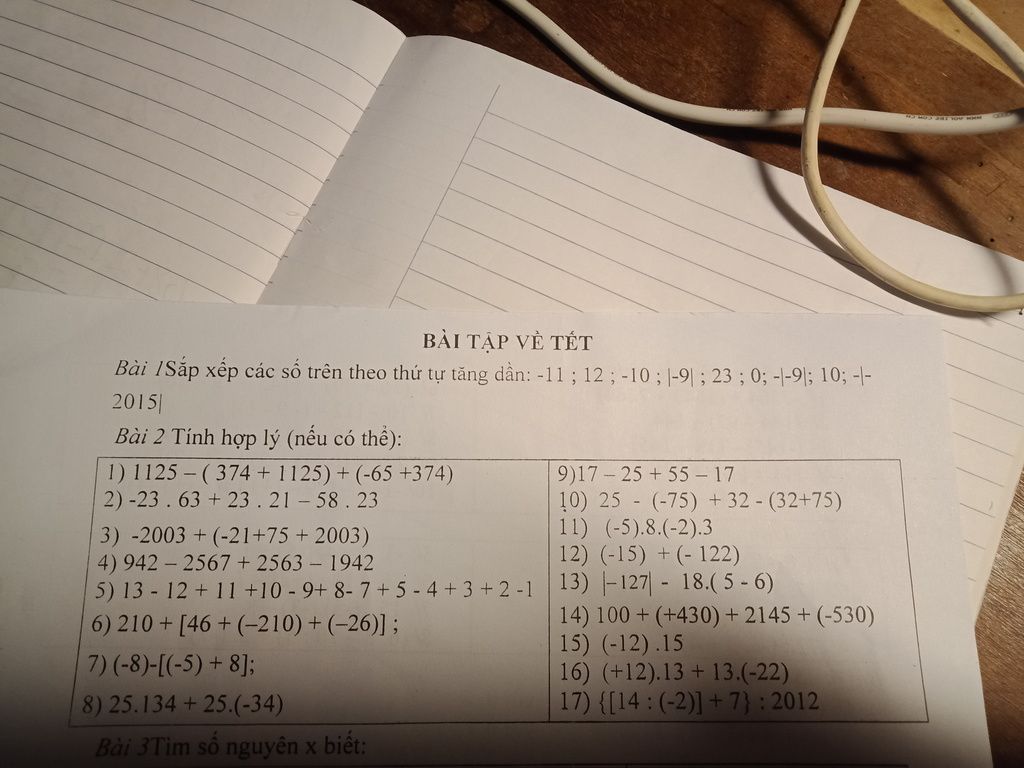 BÀI TẬP VỀ TẾT
Bài 1Sắp xếp các số trên theo thứ tự tăng dần: -11 ; 12 ; -10 ; |-9| ; 23 ; 0; -|-9|; 10; -|-
2015|
Bài 2 Tính hợp lý (nếu có thể):
1) 1125 – ( 374 + 1125) + (-65 +374)
2) -23 . 63 + 23 . 21 – 58 . 23
3) -2003 + (-21+75 + 2003)
4) 942 – 2567 + 2563 – 1942
5) 13 - 12 + 11 +10 - 9+ 8- 7 + 5 - 4 + 3 + 2 -1
6) 210 + [46 + (–210) + (–26)] ;
7) (-8)-[(-5) + 8];
8) 25.134 + 25.(-34)
9)17 – 25 + 55 – 17
10) 25 - (-75) + 32 - (32+75)
11) (-5).8.(-2).3
12) (-15) + (- 122)
13) |–127| - 18.( 5 - 6)
14) 100 + (+430) + 2145 + (-530)
15) (-12) .15
16) (+12).13 + 13.(-22)
17) {[14 : (-2)] + 7} : 2012
Bài 3Tìm số nguyên x biết: